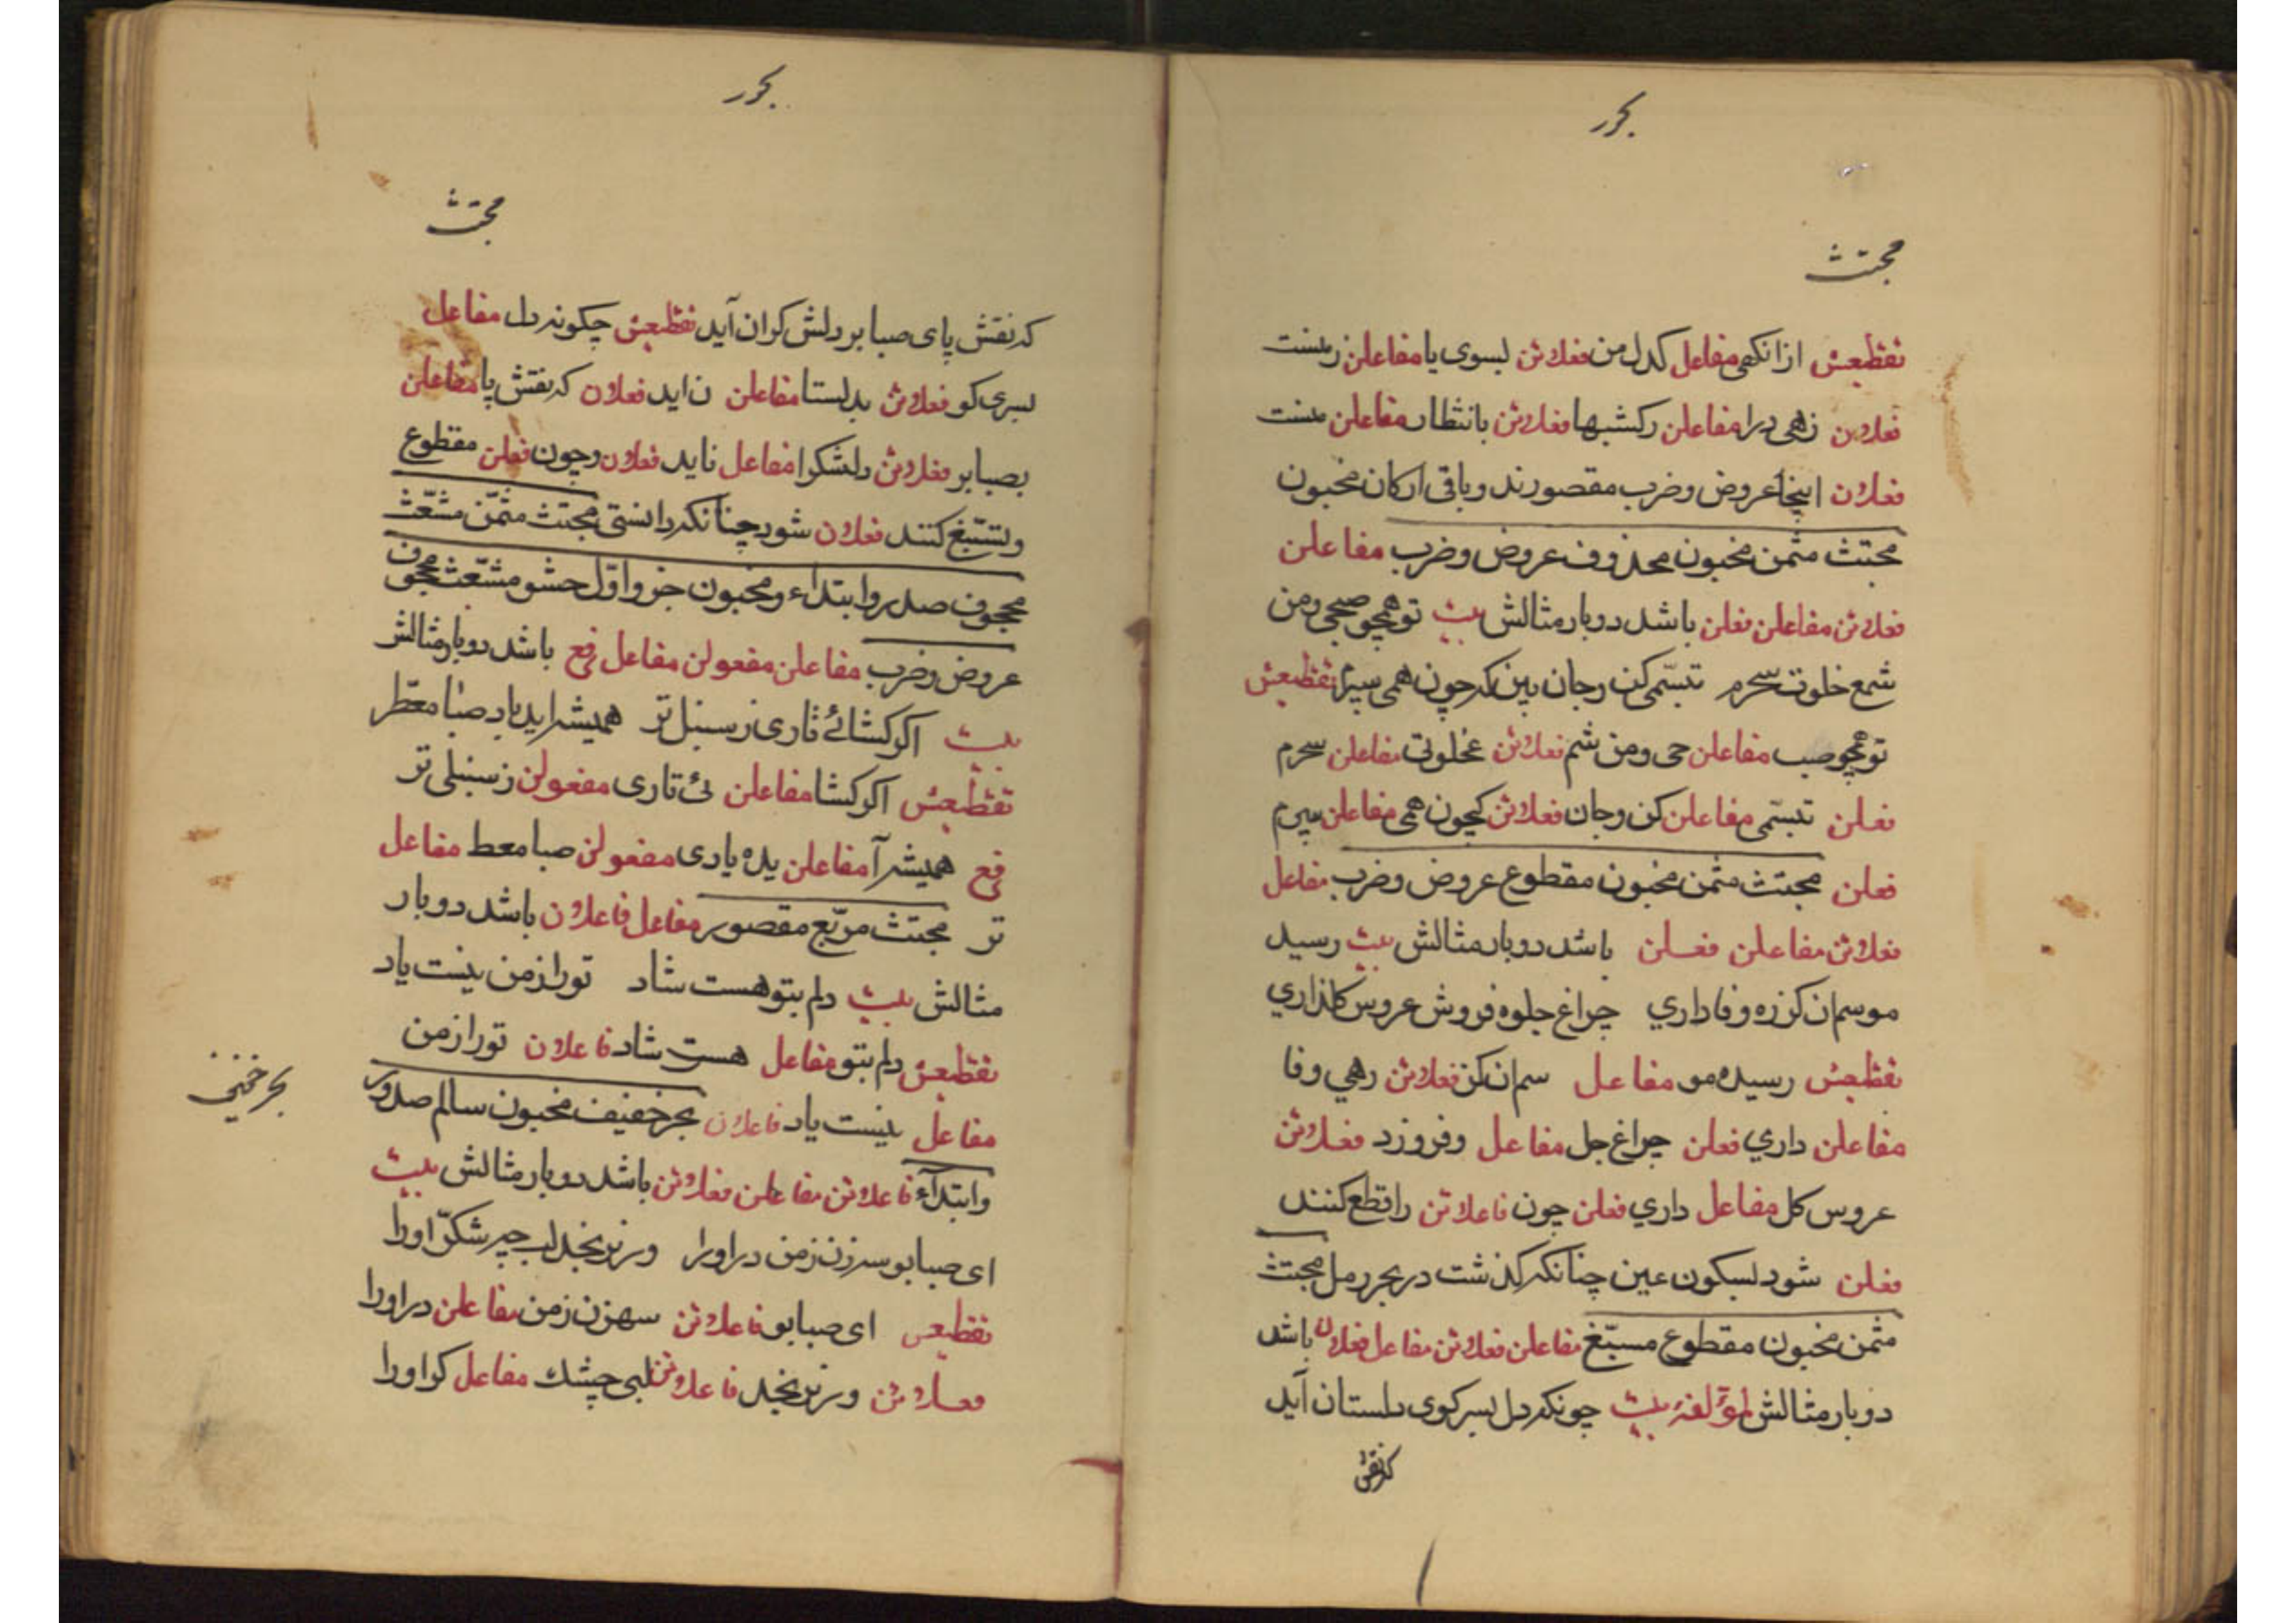 بحور
مجتث
تقطیعش ازانکهی مفاعل کدل من فعلاتن بسوی یا مفاعلن رمنست
فعلان زهی درا مفاعلن رکشبها فعلاتن بانتظار مفاعلن منست
فعلان اینجا عروض وضرب مقصورند وباقی ارکان مخبون
مجتث مثمن مخبون محذوف عروض وضرب مفاعلن
فعلاتن مفاعلن فعلن باشد دوبار مثالش بیت تو همچو صبحی ومن
شمع خلوت سحرم تبسّمی کن وجان بین که چون همی سپرم تقطیعش
تو همچو صب مفاعلن حی ومن شم فعلاتن عخلوتی مفاعلن سحرم
فعلن تبسّمی مفاعلن کن وجان فعلاتن کچون همی مفاعلن سپرم
فعلن مجتث مثمن مخبون مقطوع عروض وضرب مفاعل
فعلاتن مفاعلن فعلن باشد دوبار مثالش بیت رسید
موسم ان کز ره وفاداري چراغ جلوه فروش عروس کلذاري
تقطیعش رسیده مو مفاعل سم ان کز فعلاتن رهي وفا
مفاعلن داري فعلن چراغ جل مفاعل وفروزد فعلاتن
عروس کل مفاعل داري فعلن چون فاعلاتن را قطع کنند
فعلن شود بسکون عین چنانکه کذشت در بحر رمل مجتث
مثمن مخبون مقطوع مسبّغ مفاعلن فعلاتن مفاعل فعلان باشد
دوبار مثالش لمؤلفه بیت چونکه دل بسر کوی دلستان آید
که نقش
بحور
مجتث
که نقش پای صبا بر دلش کران آید تقطیعش چکونه دل مفاعل
بسری کو فعلاتن بدلستا مفاعلن ن اید فعلان که نقش پا مفاعلن
بصبا بر فعلاتن دلشکرا مفاعل ناید فعلان وچون فعلن مقطوع
وتسبّغ کنند فعلان شود چنانکه دانستی مجتث مثمّن مشعّث
مجحوف صدر وابتداء ومخبون جزو اوّل حشو مشعّث مجحوف
عروض وضرب مفاعلن مفعولن مفاعل فع باشد دوبار مثالش
بیت اکر کشائے تاری ز سنبل تر همیشه اید باد صبا معطّر
تقطیعش اکر کشا مفاعلن ئ تاری مفعولن ز سنبلی تر
فع همیشه آ مفاعلن یده بادی مفعولن صبا معط مفاعل
تر مجتث مربّع مقصور مفاعل فاعلان باشد دوبار
مثالش بیت دلم بتو هست شاد تورا ز من نیست یاد
تقطیعش دلم بتو مفاعل هست شاد فاعلان تورا ز من
مفاعل نیست یاد فاعلان بحر خفیف مخبون سالم صدور
بحر خفیف
وابتدآء فاعلاتن مفاعلن فعلاتن باشد دوبار مثالش بیت
ای صبا بوسه زن ز من در اورا ور نرنجد لب چو شکّر اورا
تقطیعی ای صبا بو فاعلاتن سهزن ز من مفاعلن در اورا
فعلاتن ور نرنجد فاعلاتن لبی چشک مفاعل کر اورا